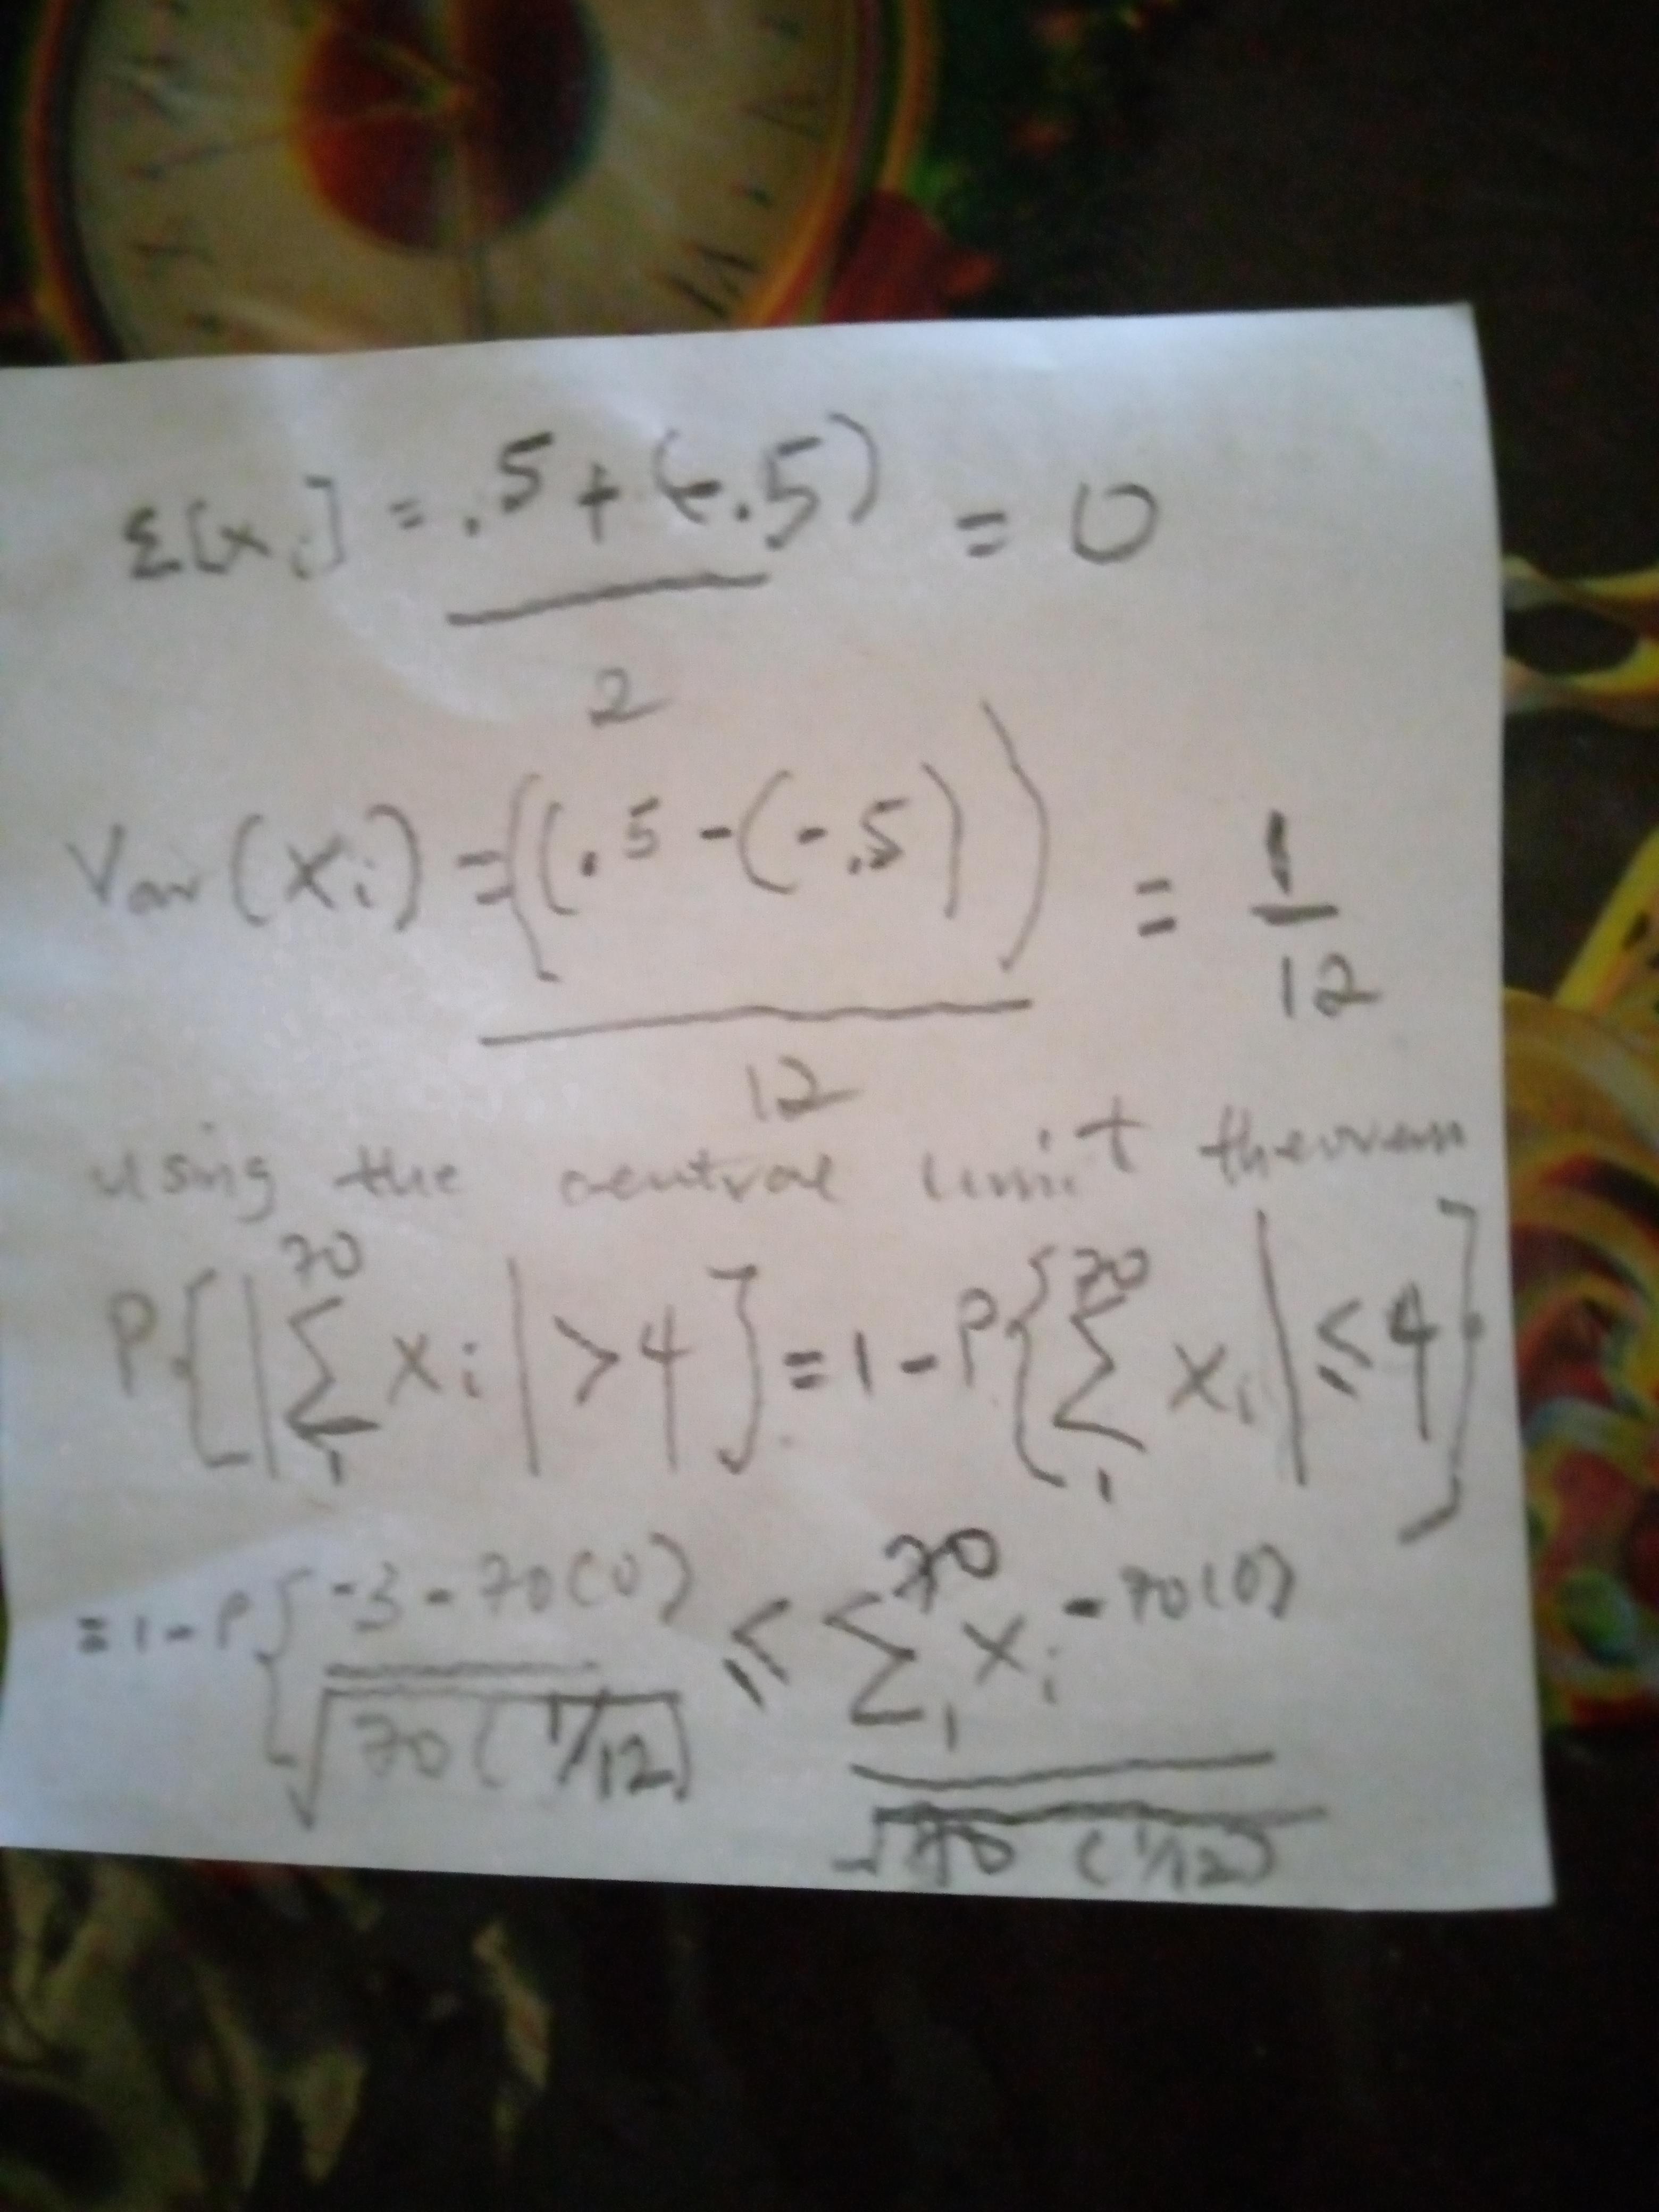 E[xi] = .5 + (-.5) = 0
2
Var(Xi) = ((.5 - (-.5)) = 1/12
12
using the central limit theorem
P{|∑ 70 1 xi| > 4} = 1 - P{∑ 70 1 Xi| ≤ 4}
= 1 - P{-3 - 70(0) ≤ ∑ 70 1 Xi - 70(0)
√70(1/12) √70(1/12)